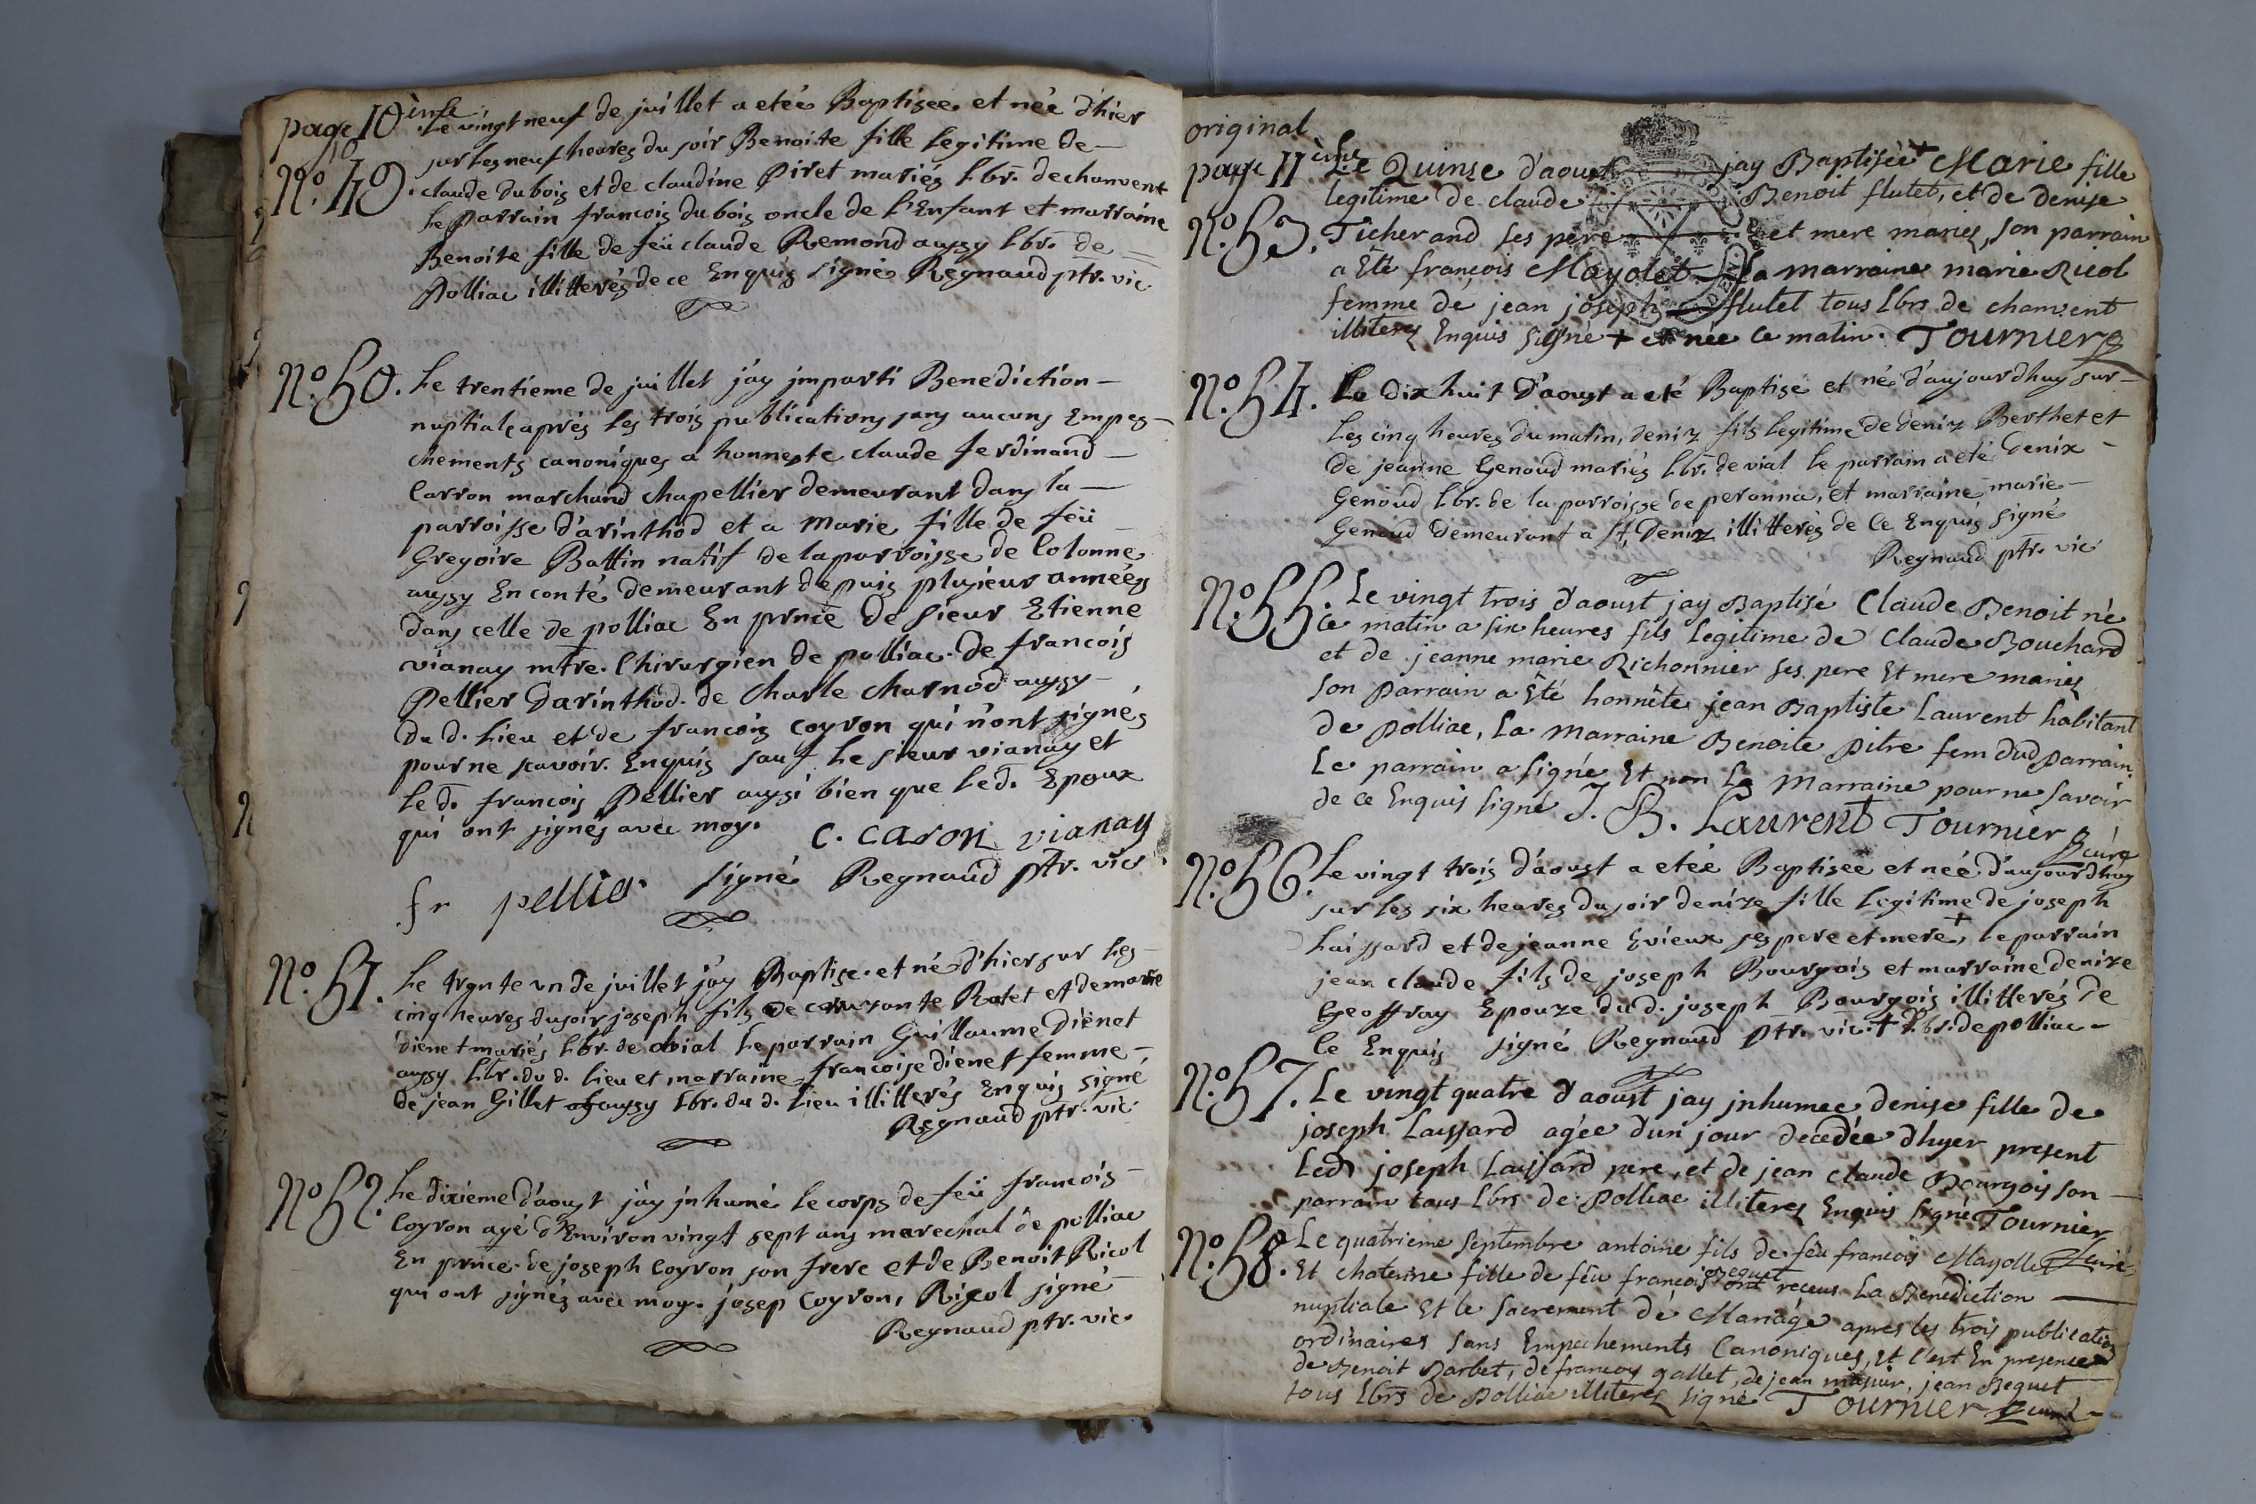 page 10 ieme
Le vingt neuf de juillet a eteé Baptisee et née d'hier
sur les neuf heures du soir Benoite fille Legitime de
N.º 49. claude dubois et de claudine Piret mariés Lbr. de chanvent
Le parrain francois dubois oncle de L'Enfant et marraine
Benoite fille de feü claude Remond aussy Lbr. de
Polliac illitterés de ce Enquis signé Regnaud ptr. vic
N.º 50. Le trentieme de juillet j'ay imparti Benediction
nuptiale aprés les trois publications sans aucuns Empes-
chements canoniques a honneste claude ferdinand
Carron marchand chapellier demeurant dans la
parroisse d'arinthod et a Marie fille de feü
Gregoire Battin natif de la parroisse de Colonne
aussy En conté demeurant depuis plusieur années
dans celle de polliac En prnce de sieur Etienne
vianay mtre. Chirurgien de polliac. de francois
Pellier Darinthod. de Charle charnod aussy
du d. Lieu et de francois coyron qui n'ont signés
pour ne scavoir. Enquis sauf Le sieur vianay et
Le d. francois Pellier aussi bien que le d. Epoux
qui ont signés avec moy. C. Caron vianay
fr pellier signé Regnaud ptr. vic
N.º 51. Le trente un de juillet j'ay Baptise. et né d'hier sur Les
cinq heures du soir joseph fils de Ratet et de marie
dienet mariés Lbr. de vial Le parrain Guillaume Dienet
aussy Lbr. du d. Lieu et marraine francoise dienet femme
de jean Gillet aussy Lbr. du d. Lieu illitterés Enquis signé
Regnaud ptr. vic
N.º 52. Le dixieme d'aoust j'ay inhumé Le corps de feü francois
Coyron agé d'Environ vingt sept ans marechal de polliac
En prnce. de joseph Coyron son frere et de Benoit Ricol
qui ont signés avec moy. josep Coyron, Ricol signé
Regnaud ptr. vic.
original
page 11 ieme
Le Quinse d'aoust jay Baptisée + Marie fille
legitime de claude Benoit flutet, et de denise
N.º 53. Ticherand ses pere et mere mariés, son parrain
a Eté françois Mayolet La marraine marie Ricol
femme de jean joseph flutet tous Lbrs de chanvent
illiterés Enquis Signé + et née ce matin. Tournier
N.º 54. Le dix huit d'aoust a eté Baptisé et né d'aujourdhuy sur
Les cinq heures du matin, deniz fils legitime de deniz Berthet et
de jeanne Genoud mariés Lbr. de vial Le parrain a eté Denix
Genoud Lbr. de la parroisse de peronna, et marraine marie
Genoud Demeurant a St. Deniz illitterés de Ce Enquis signé
Regnaud ptr. vic
N.º 55. Le vingt trois d'aoust jay Baptisé Claude Benoit né
Ce matin a six heures fils Legitime de Claude Bouchard
et de jeanne marie Richonnier ses pere Et mere mariés
son parrain a Eté honnête jean Baptiste Laurent habitant
de Polliac, La Marraine Benoite Pitre fem dud parrain.
Le parrain a signé Et non La Marraine pour ne savoir
de ce Enquis signé J. B. Laurent Tournier curé
N.º 56. Le vingt trois d'aoust a eteé Baptisee et neé d'aujourdhuy
sur les six heures du soir denize fille legitime de joseph
Laissard et de jeanne Evieux ses pere et mere +, le parrain
jean claude fils de joseph Bourgois et marraine denize
Geoffray Epouze du d. joseph Bourgois illitterés de
Ce Enquis signé Regnaud Ptr. vic. + Lbr. de polliac
N.º 57. Le vingt quatre d'aoust jay inhumee denise fille de
joseph Laissard agée dun jour decedée dhyer present
Led joseph Laissard pere, et de jean claude Bourgois son
parrain tous Lbrs de Polliac illiteres Enquis Signé Tournier
curé
N.º 58. Le quatrieme Septembre antoine fils de feu francois Mayollet
Et chaterine fille de feu francois Bequet ont receus La Benediction
nuptiale Et le sacrement de Mariage apres les trois publications
ordinaires sans Empechements Canoniques, Et c'est En presence
de Benoit Barbet, de francois gallet, de jean , jean Bequet
tous Lbrs de Polliac illiteres signé Tournier curé